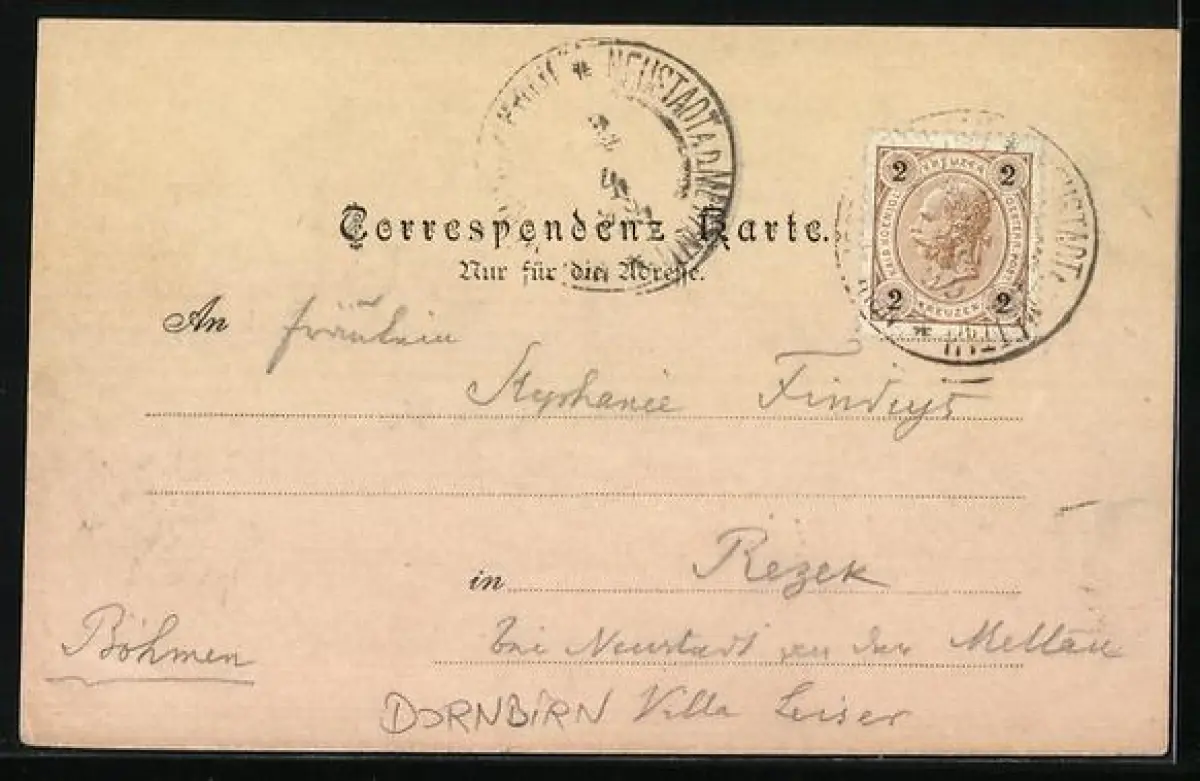 NEUSTADT A.D. METTAU
Correspondenz-Karte.
Nur für die Adresse.
2 KREUZER 2
KAIS. KOENIGL. OESTERR. POST
2 KREUZER 2
NEUSTADT
An Fräulein
Stephanie
in Rezek
bei Neustadt an der Mettau
Böhmen
DORNBIRN Villa Leiser